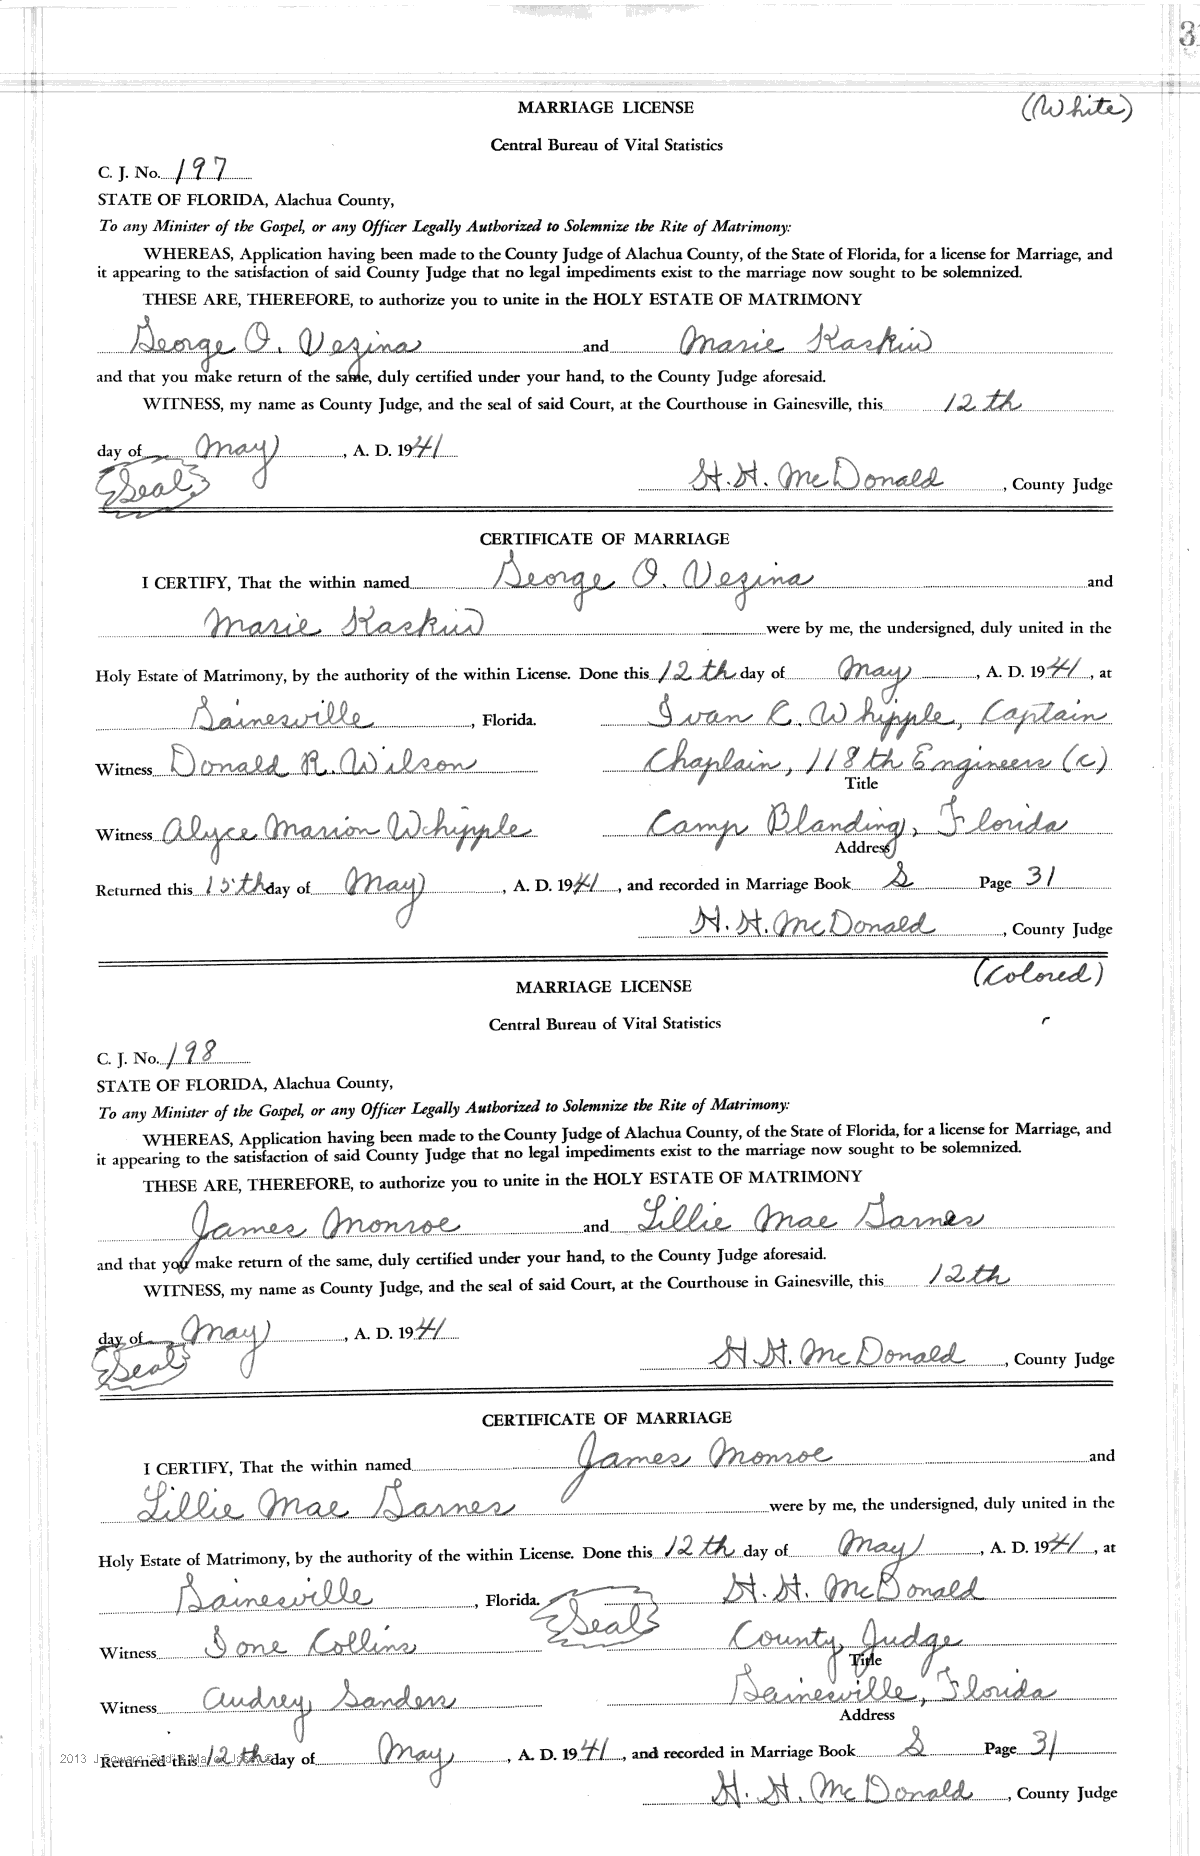 31
MARRIAGE LICENSE (White)
Central Bureau of Vital Statistics
C. J. No. 197
STATE OF FLORIDA, Alachua County,
To any Minister of the Gospel, or any Officer Legally Authorized to Solemnize the Rite of Matrimony:
WHEREAS, Application having been made to the County Judge of Alachua County, of the State of Florida, for a license for Marriage, and
it appearing to the satisfaction of said County Judge that no legal impediments exist to the marriage now sought to be solemnized.
THESE ARE, THEREFORE, to authorize you to unite in the HOLY ESTATE OF MATRIMONY
George O. Vezina and Marie Kaskin
and that you make return of the same, duly certified under your hand, to the County Judge aforesaid.
WITNESS, my name as County Judge, and the seal of said Court, at the Courthouse in Gainesville, this 12th
day of May, A. D. 1941
Seal H. H. McDonald, County Judge
CERTIFICATE OF MARRIAGE
I CERTIFY, That the within named George O. Vezina and
Marie Kaskin were by me, the undersigned, duly united in the
Holy Estate of Matrimony, by the authority of the within License. Done this 12th day of May, A. D. 1941, at
Gainesville, Florida. Ivan C. Whipple, Captain
Witness Donald R. Wilson Chaplain, 118th Engineers (c)
Title
Witness Alyce Marion Whipple Camp Blanding, Florida
Address
Returned this 15th day of May, A. D. 1941, and recorded in Marriage Book S Page 31
H. H. McDonald, County Judge
(Colored)
MARRIAGE LICENSE
Central Bureau of Vital Statistics
C. J. No. 198
STATE OF FLORIDA, Alachua County,
To any Minister of the Gospel, or any Officer Legally Authorized to Solemnize the Rite of Matrimony:
WHEREAS, Application having been made to the County Judge of Alachua County, of the State of Florida, for a license for Marriage, and
it appearing to the satisfaction of said County Judge that no legal impediments exist to the marriage now sought to be solemnized.
THESE ARE, THEREFORE, to authorize you to unite in the HOLY ESTATE OF MATRIMONY
James Monroe and Lillie Mae Garnes
and that you make return of the same, duly certified under your hand, to the County Judge aforesaid.
WITNESS, my name as County Judge, and the seal of said Court, at the Courthouse in Gainesville, this 12th
day of May, A. D. 1941
Seal H. H. McDonald, County Judge
CERTIFICATE OF MARRIAGE
I CERTIFY, That the within named James Monroe and
Lillie Mae Garnes were by me, the undersigned, duly united in the
Holy Estate of Matrimony, by the authority of the within License. Done this 12th day of May, A. D. 1941, at
Gainesville, Florida. Seal H. H. McDonald
Witness Ione Collins County Judge
Title
Witness Audrey Sanders Gainesville, Florida
Address
2013 Returned this 12th day of May, A. D. 1941, and recorded in Marriage Book S Page 31
H. H. McDonald, County Judge